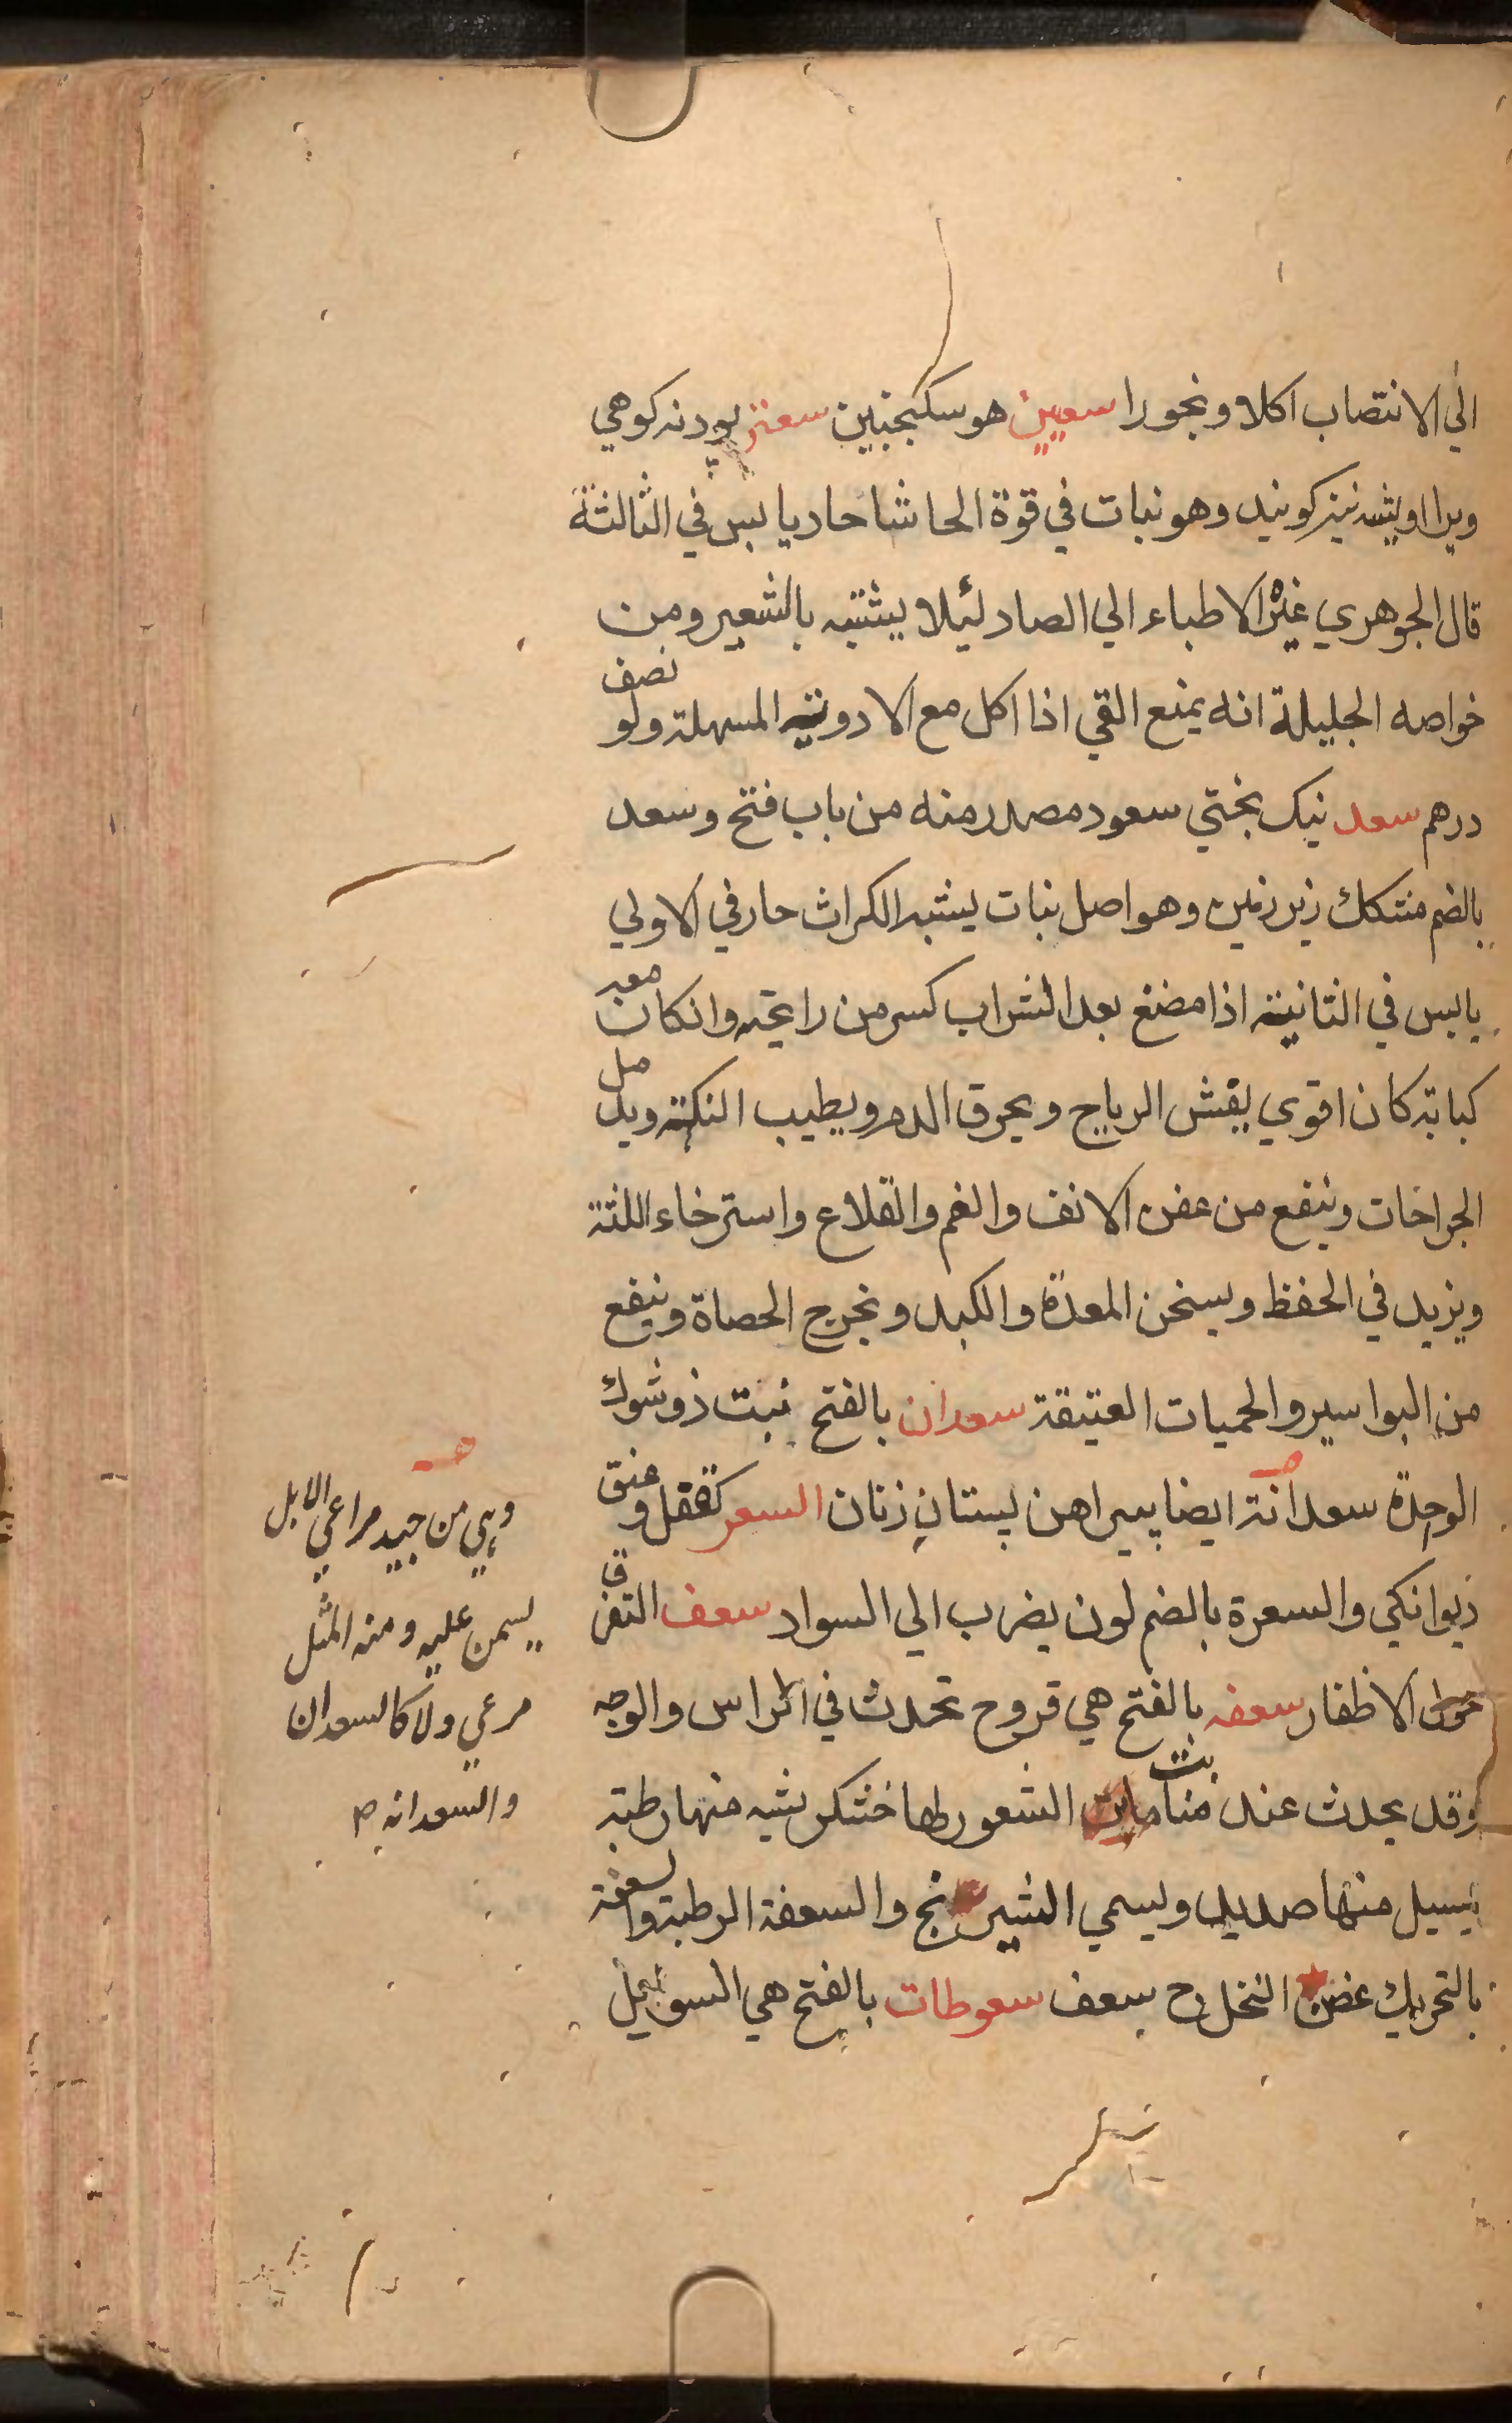 الي الانتصاب اكلا وبخورا سعيين هو سكبجنبين سعتر پودنه كوهي
ويرا اويشه نيز كويند وهو نبات في قوة الحاشا حار يابس في الثالثة
قال الجوهري غيره الاطباء الي الصاد لئلا يشتبه بالشعير ومن
خواصه الجليلة انه يمنع القي اذا اكل مع الادوية المسهلة ولو نصف
درهم سعد نيك بختي سعود مصدر منه من باب فتح وسعد
بالضم منتكك زير زمين وهو اصل نبات يشبه الكراث حار في الاولي
يابس في الثانية اذا مضغ بعد الشراب كسر من رايحته وانكان معه
كبابة كان اقوي يفش الرياح ويحرق الدم ويطيب النكهة ويدمل
الجراحات وينفع من عفن الانف والفم والقلاع واسترخاء اللثة
ويزيد في الحفظ ويسخن المعدة والكبد ويخرج الحصاة وينفع
من البواسير والحميات العتيقة سعدان بالفتح نبت ذو شوك
الوحدة سعدانة ايضا پيراهن پستان زنان السعر كقفل وعنق
ديوانكي والسعرة بالضم لون يضرب الي السواد سعف التفرق
حول الاظفار سعفه بالفتح هي قروح تحدث في الراس والوجه
وقد يحدث عند منابت الشعور لها خشكريشه منها رطبة
يسيل منها صديد ويسمي الشيرينج والسعفة الرطبة والسعفة
بالتحريك غصن النخل ج سعف سعوطات بالفتح هي السوائل
وهي من جيد مراعي الابل
يسمن عليه ومنه المثل
مرعي ولا كالسعدان
والسعدانه ص